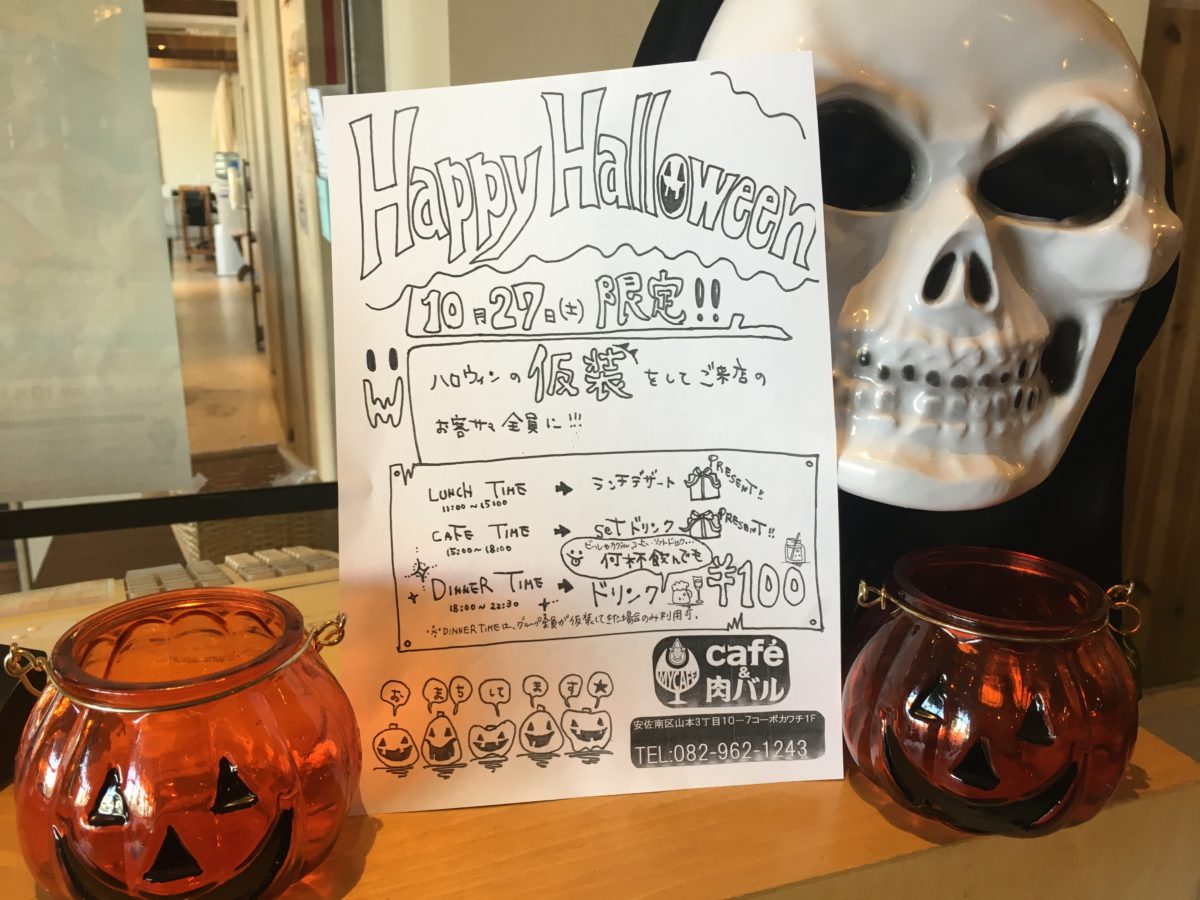 Happy Halloween
10月27日(土) 限定!!
ハロウィンの仮装をしてご来店の
お客サマ全員に!!!
LUNCH TIME → ランチデザート PRESENT!!
11:00~15:00
CAFE TIME → setドリンク PRESENT!!
15:00~18:00
何杯飲んでも
DINNER TIME → ドリンク ¥100
18:00~22:30
※DINNER TIMEは、グループ全員が仮装してきた場合のみ利用可。
おまちしてます★
MYCAFE
café & 肉バル
安佐南区山本3丁目10-7コーポカワチ1F
TEL:082-962-1243